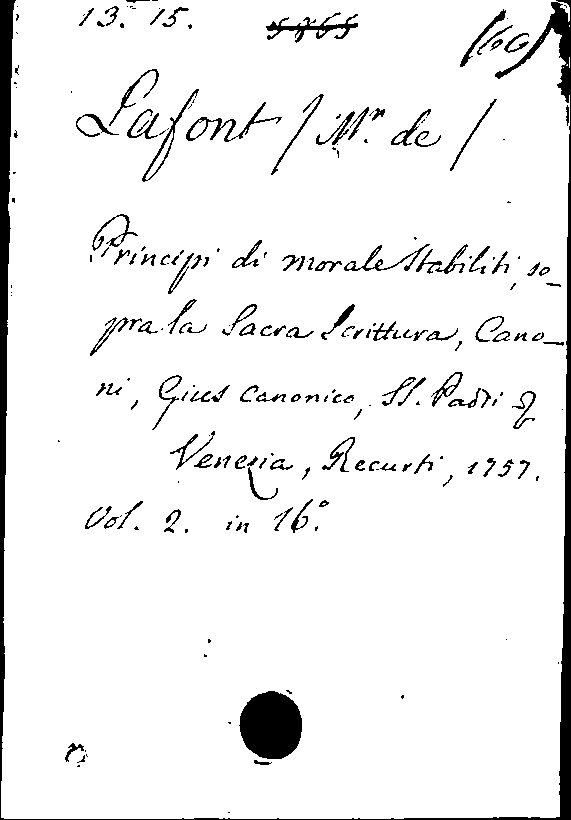 13. 15. 5865 (60)
Lafont / Mr. de /
Principi di morale stabiliti, so-
pra la Sacra Scrittura, Cano-
ni, Gius canonico, SS. Padri &
Venezia, Recurti, 1757.
Vol. 2. in 16°.